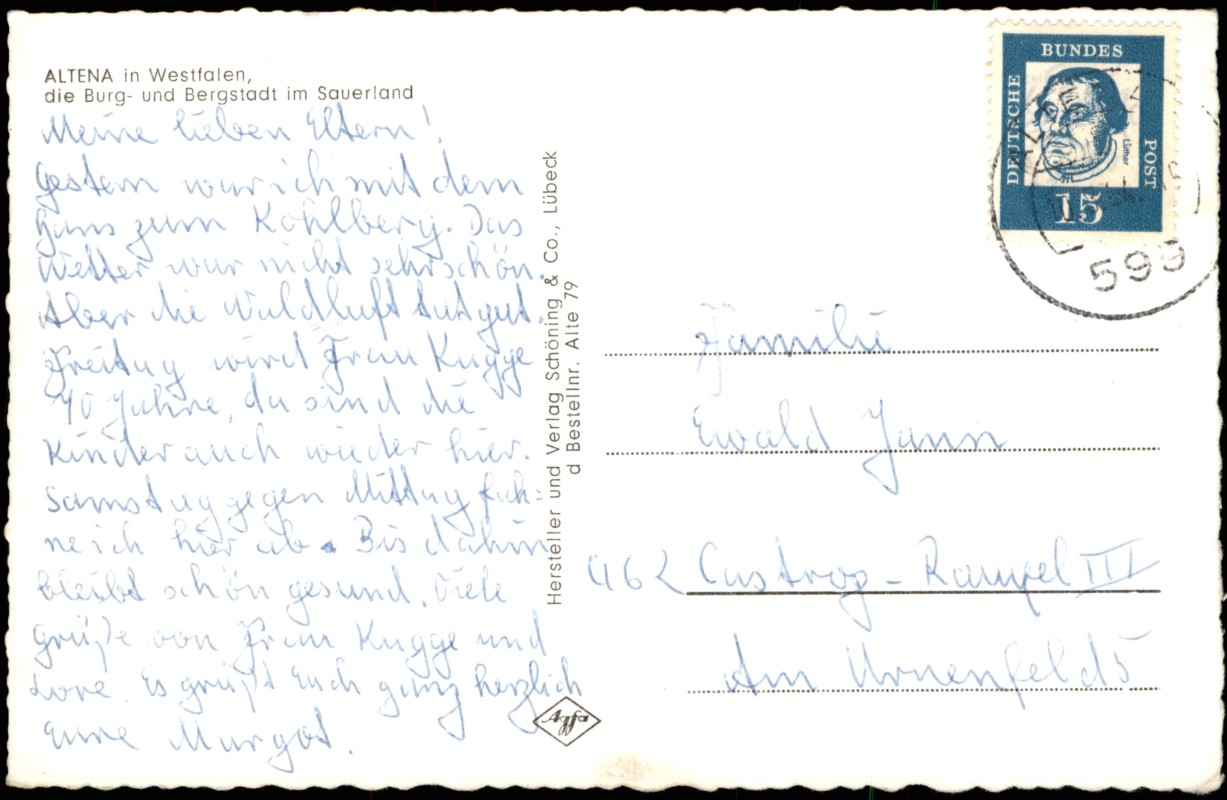 ALTENA in Westfalen,
die Burg- und Bergstadt im Sauerland
Meine lieben Eltern!
Gestern war ich mit dem
Hans zum Kohlberg. Das
Wetter war nicht sehr schön.
Aber die Waldluft tut gut.
Freitag wird Frau Kugge
40 Jahre, da sind die
Kinder auch wieder hier.
Samstag gegen Mittag fah=
re ich hier ab. Bis dahin
bleibt schön gesund. Viele
Grüße von Frau Kugge und
Lore. Es grüßt Euch ganz herzlich
Eure Margot.
Hersteller und Verlag Schöning & Co., Lübeck
d Bestellnr. Alte 79
Agfa
DEUTSCHE
BUNDES
POST
Luther
15
599
Familie
Ewald Jann
462 Castrop-Rauxel III
Am Urnenfeld 5